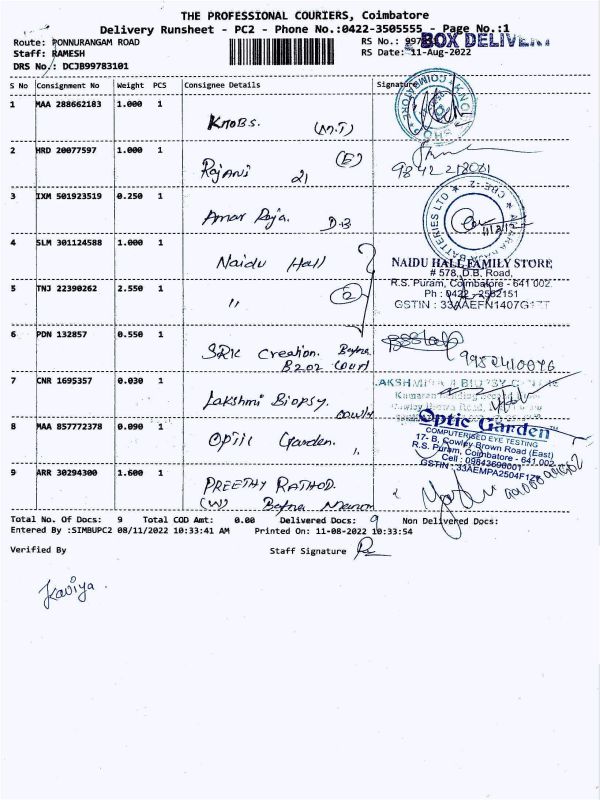 THE PROFESSIONAL COURIERS, Coimbatore
Delivery Runsheet - PC2 - Phone No.:0422-3505555 - Page No.:1
Route: PONNURANGAM ROAD
RS No.: 997
BOX DELIVERY
Staff: RAMESH
RS Date: 11-Aug-2022
DRS No.: DCJB99783101
S No Consignment No Weight PCS Consignee Details Signature
1 MAA 288662183 1.000 1 KNOBS. (M.T)
2 HRD 20077597 1.000 1 Rajani 21 (E)
3 IXM 501923519 0.250 1 Amar Raja. D.B
BATTERIES LTD
4 SLM 301124588 1.000 1 Naidu Hall
NAIDU HALL FAMILY STORE
# 578, D.B. Road,
R.S. Puram, Coimbatore - 641 002.
5 TNJ 22390262 2.550 1 " 2
Ph : 0422 - 2552151
GSTIN : 33AAEFN1407G
6 PDN 132857 0.550 1 SRK Creation.
B202 Court
9952410076
7 CNR 1695357 0.030 1 Lakshmi Biopsy. cowly
8 MAA 857772378 0.090 1 OPTIC Garden. "
Optic Garden
COMPUTERISED EYE TESTING
17- B, Cowley Brown Road (East)
R.S. Puram, Coimbatore - 641 002
Cell : 09843696001
GSTIN : 33AEMPA2504F1
9 ARR 30294300 1.600 1 PREETHY RATHOD.
(W) Manor
Total No. Of Docs: 9 Total COD Amt: 0.00 Delivered Docs: 9 Non Delivered Docs:
Entered By :SIMBUPC2 08/11/2022 10:33:41 AM Printed On: 11-08-2022 10:33:54
Verified By Staff Signature
Kaviya